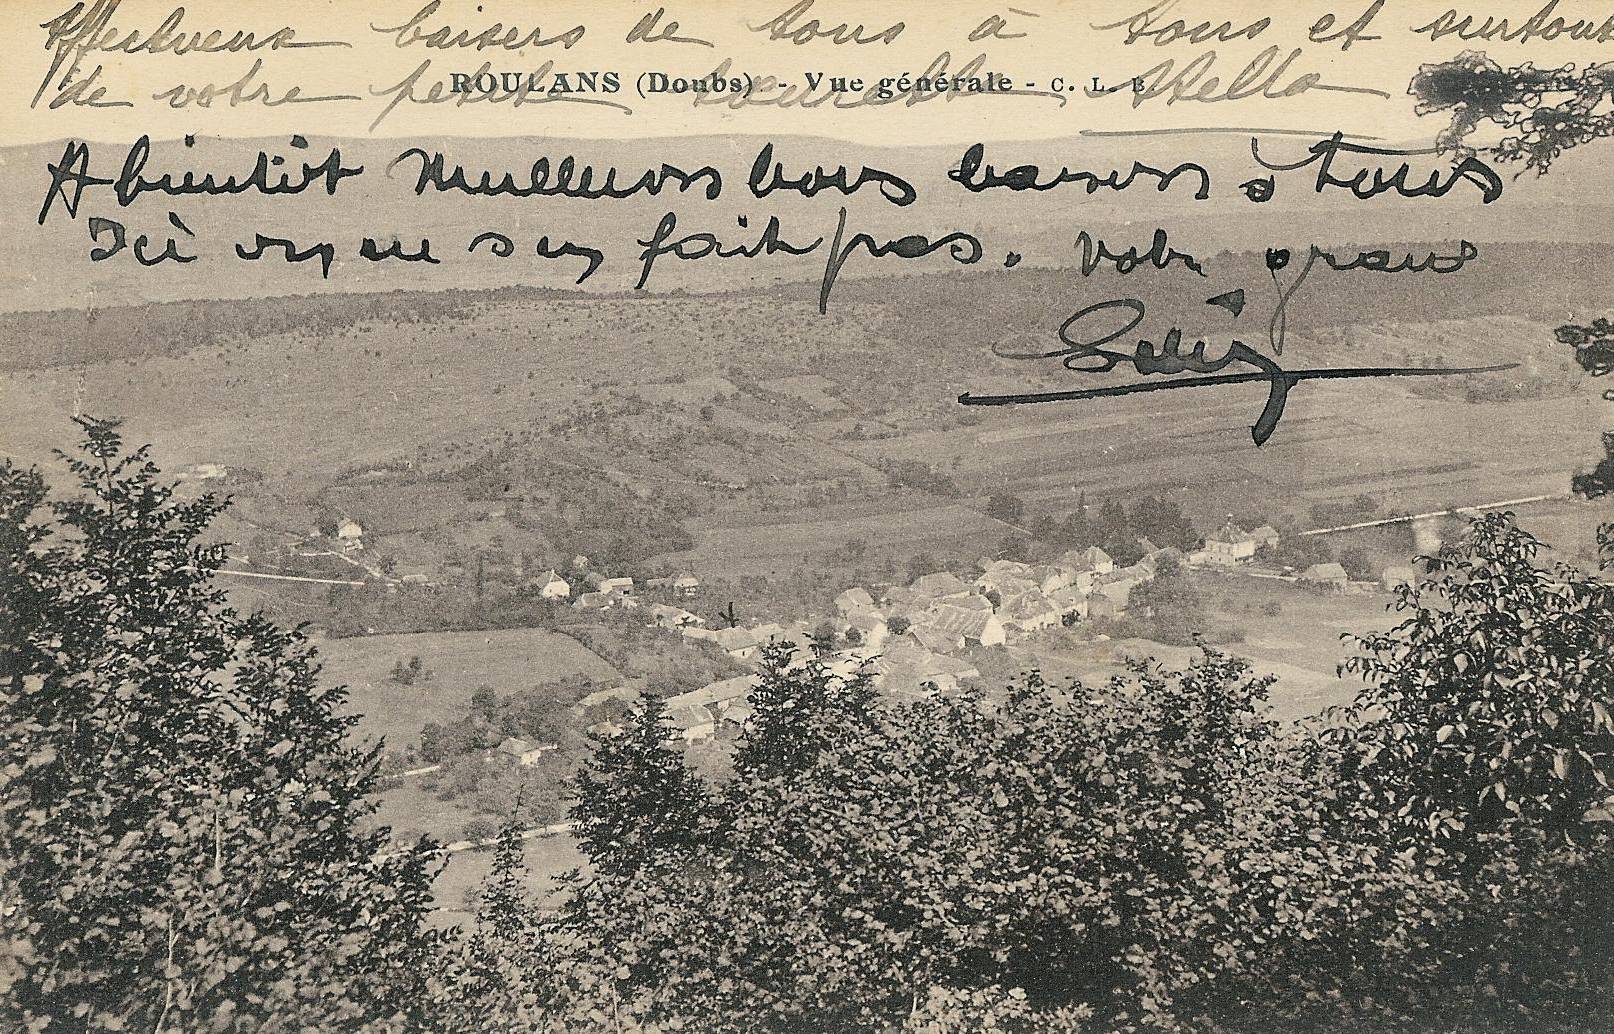 Affectueux baisers de tous à tous et surtout
de votre petite sœurette Stella
ROULANS (Doubs) - Vue générale - C. L. B.
A bientôt Meilleurs bons baisers à tous
Ici on ne s'en fait pas. Votre grand